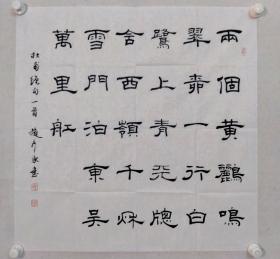 兩個黃鸝鳴
翠柳一行白
鷺上青天牕
含西嶺千秋
雪門泊東吳
萬里船
杜甫絕句一首